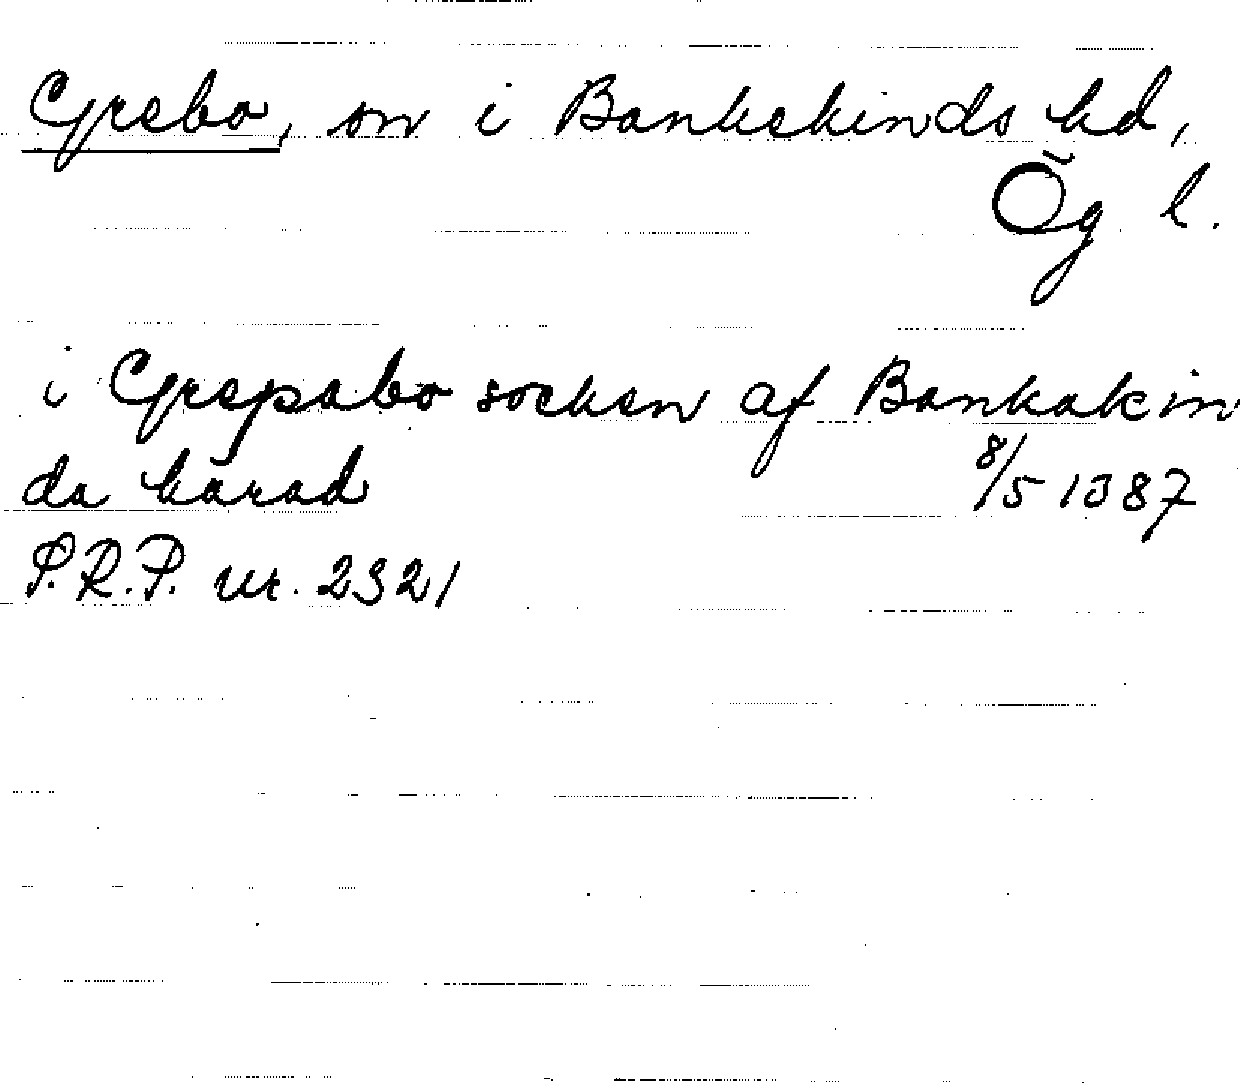 Grebo, sn i Bankekinds hd,
Ög l.
i Grepabo socken af Bankakin
da härad 8/5 1387
S.R.P. nr. 2321